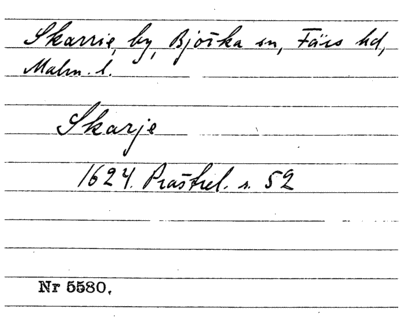 Skarrie, by, Bjöška sn, Färs hd,
Malm. l.
Skarje
1624. Prästrel. s. 52
Nr 5580.